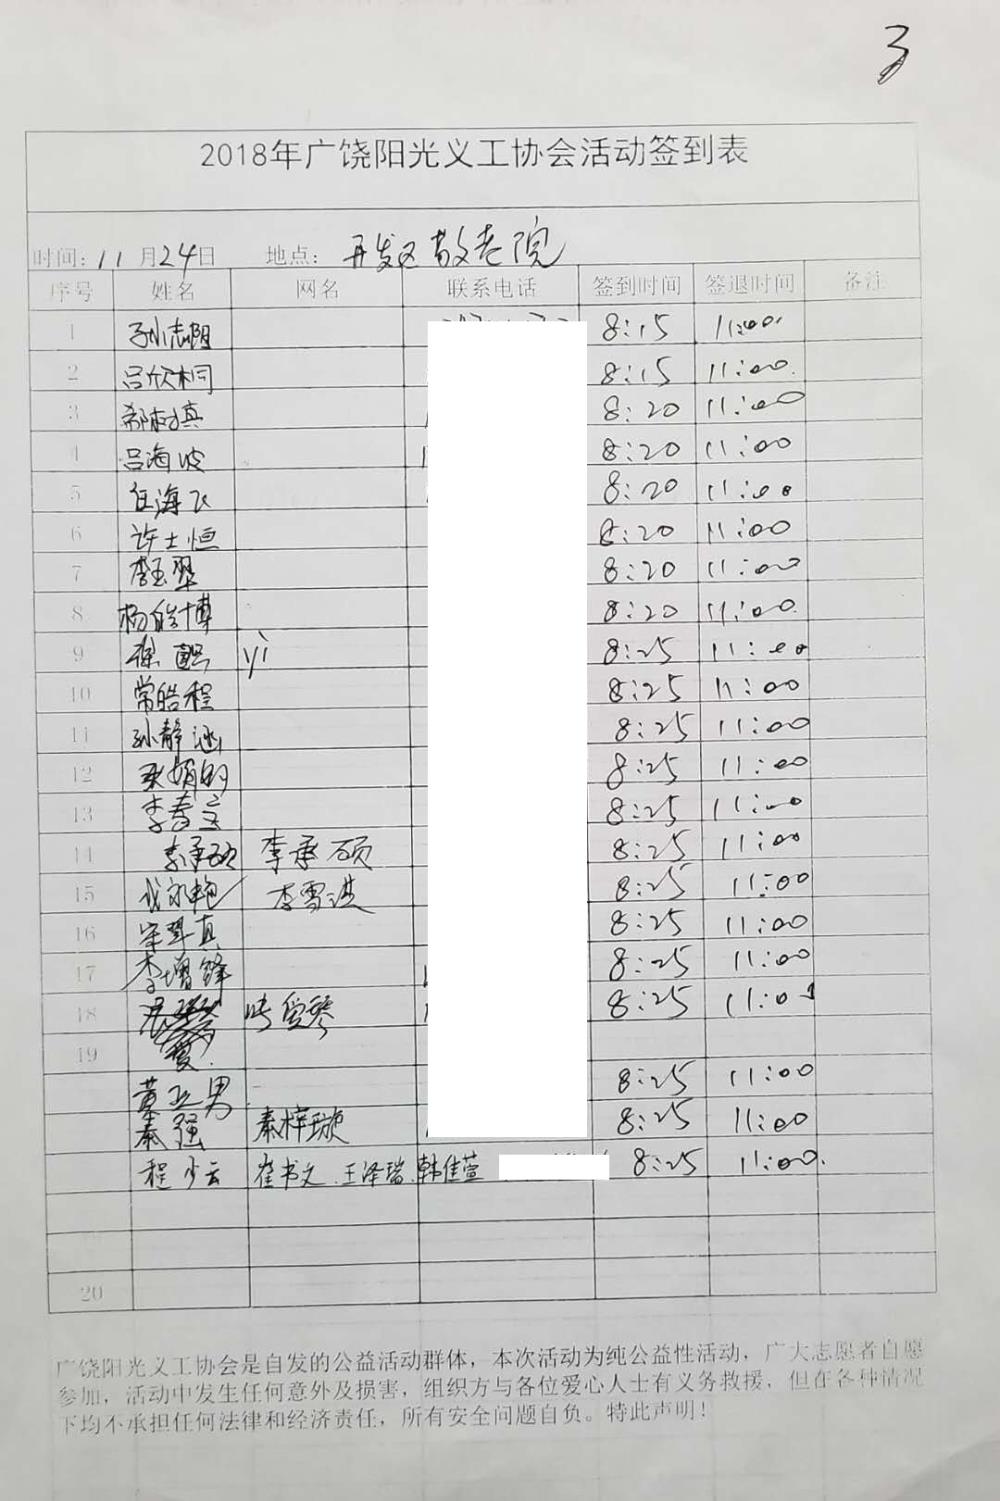 3
2018年广饶阳光义工协会活动签到表
时间: 11月24日 地点: 开发区敬老院
序号 姓名 网名 联系电话 签到时间 签退时间 备注
1 孙志阳 8:15 11:00
2 吕欣桐 8:15 11:00
3 8:20 11:00
4 吕海波 8:20 11:00
5 任海飞 8:20 11:00
6 许士恒 8:20 11:00
7 李玉翠 8:20 11:00
8 杨皓博 8:20 11:00
9 徐 yi 8:25 11:00
10 常皓程 8:25 11:00
11 孙静涵 8:25 11:00
12 8:25 11:00
13 李春 8:25 11:00
14 李承硕 李承硕 8:25 11:00
15 李雪洪 8:25 11:00
16 8:25 11:00
17 李增锋 8:25 11:00
18 8:25 11:00
19
黄亚男 8:25 11:00
秦强 秦梓璇 8:25 11:00
程少云 崔书文.王泽瑞.韩佳萱 8:25 11:00.
20
广饶阳光义工协会是自发的公益活动群体，本次活动为纯公益性活动，广大志愿者自愿
参加，活动中发生任何意外及损害，组织方与各位爱心人士有义务救援，但在各种情况
下均不承担任何法律和经济责任，所有安全问题自负。特此声明！